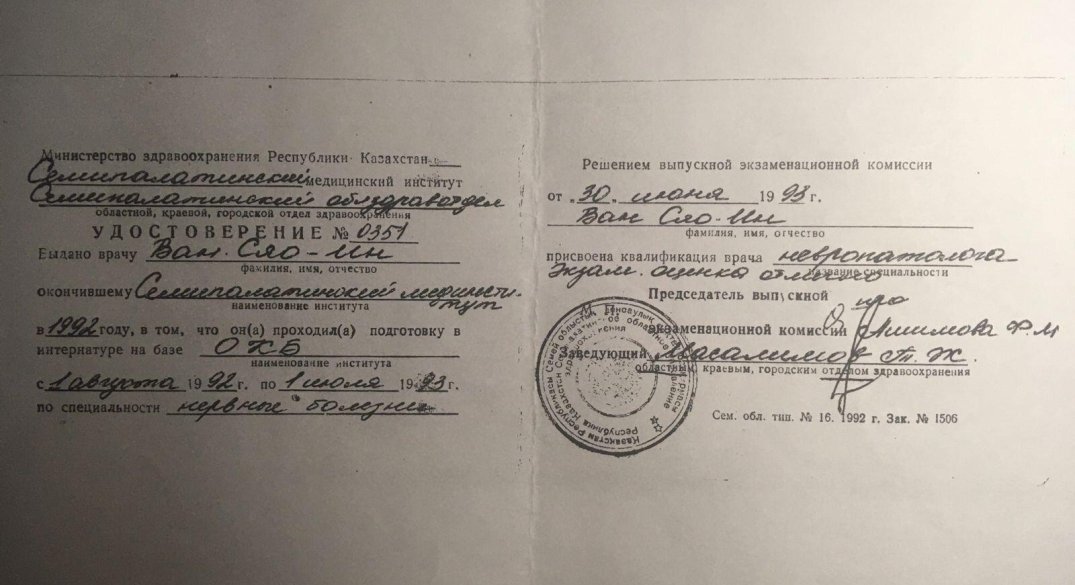 Министерство здравоохранения Республики Казахстан
Семипалатинский медицинский институт
Семипалатинский облздравотдел
областной, краевой, городской отдел здравоохранения
УДОСТОВЕРЕНИЕ № 0351
Выдано врачу Ван Сяо-Ин
фамилия, имя, отчество
окончившему Семипалатинский мединсти-
тут
наименование института
в 1992 году, в том, что он(а) проходил(а) подготовку в
интернатуре на базе ОКБ
наименование института
с 1 августа 1992 г. по 1 июля 1993 г.
по специальности нервные болезни
Решением выпускной экзаменационной комиссии
от „30„ июня 1993 г.
Ван Сяо-Ин
фамилия, имя, отчество
присвоена квалификация врача невропатолога
Экзам. оценка отлично
название специальности
Председатель выпускной
экзаменационной комиссии Ф. М
Заведующий Масалимов Т. Ж.
областным, краевым, городским отделом здравоохранения
Сем. обл. тип. № 16. 1992 г. Зак. № 1506